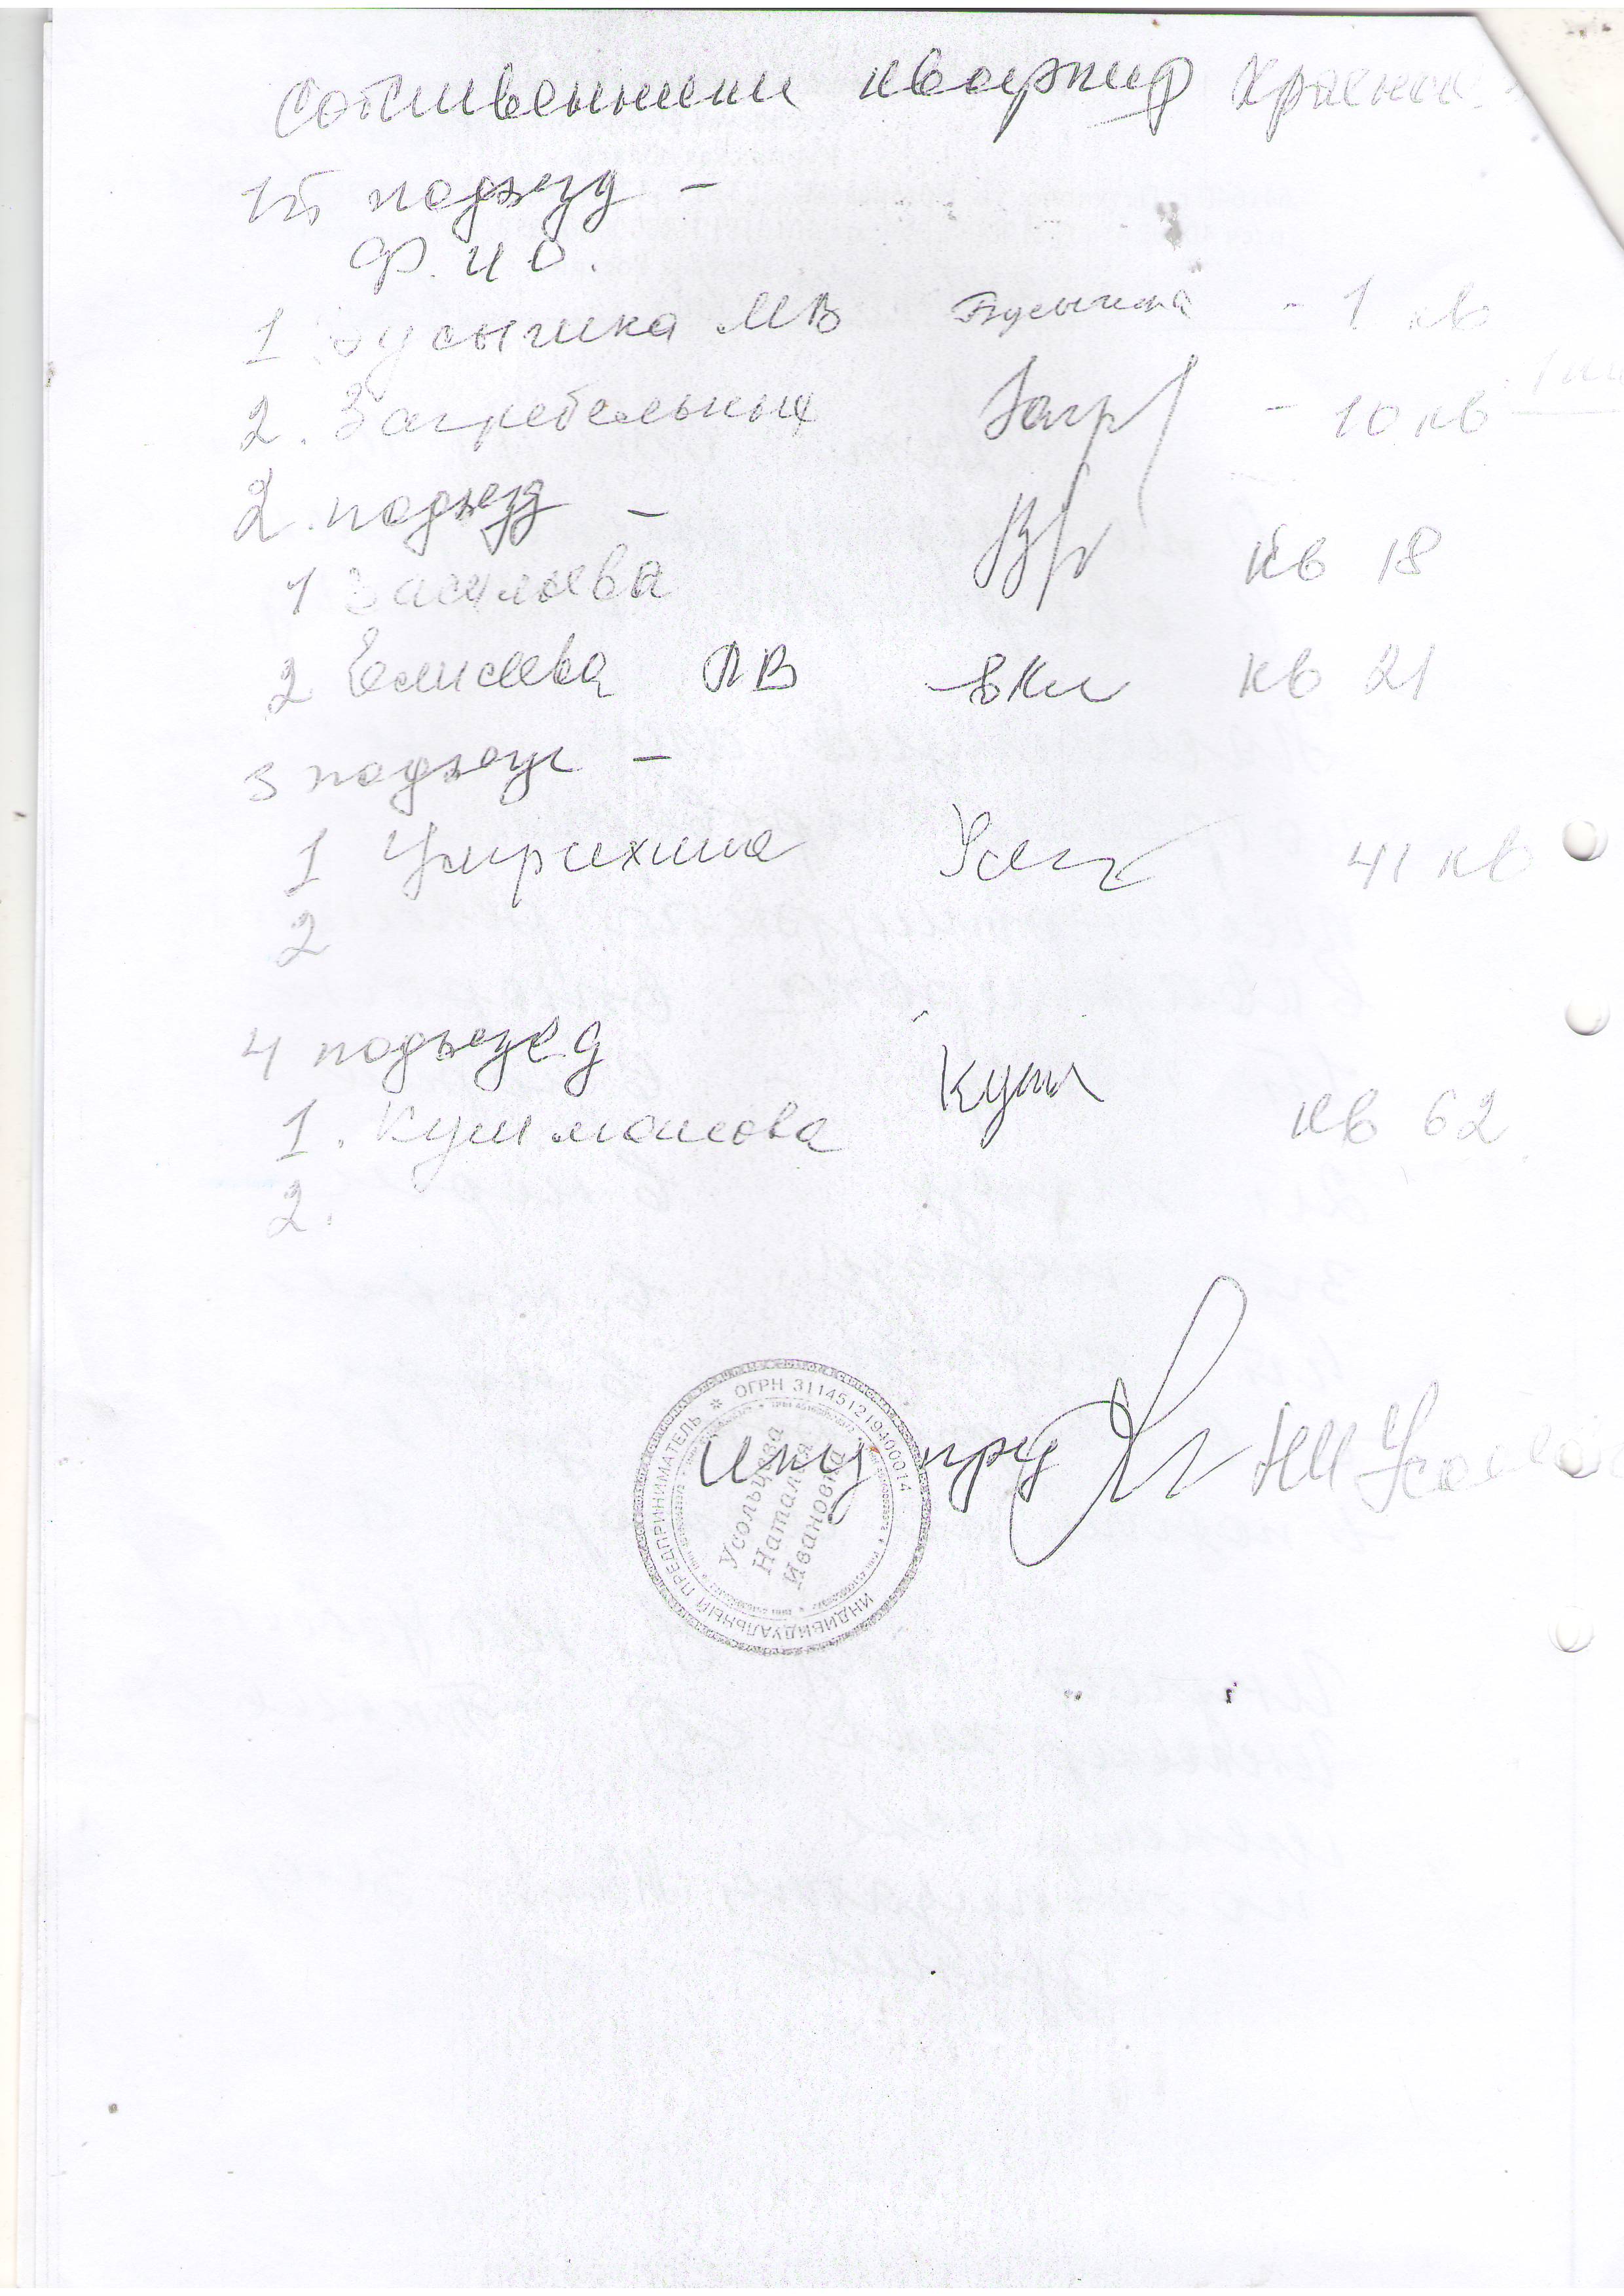 Собственники квартир
1й подъезд -
Ф.И О.
1 Бусыгина МВ Бусыгина - 1 кв
2. Загребельных Загр - 10 кв
2. подъезд -
1 Васильева кв 18
2 Елисеева ЛВ кв 21
3 подъезд -
1 41 кв
2
4 подъезд
1. Кушманова Куш кв 62
2.
ИНДИВИДУАЛЬНЫЙ ПРЕДПРИНИМАТЕЛЬ * ОГРН 311451219400014
Усольцева
Наталья
Ивановна
Инд пред НИ